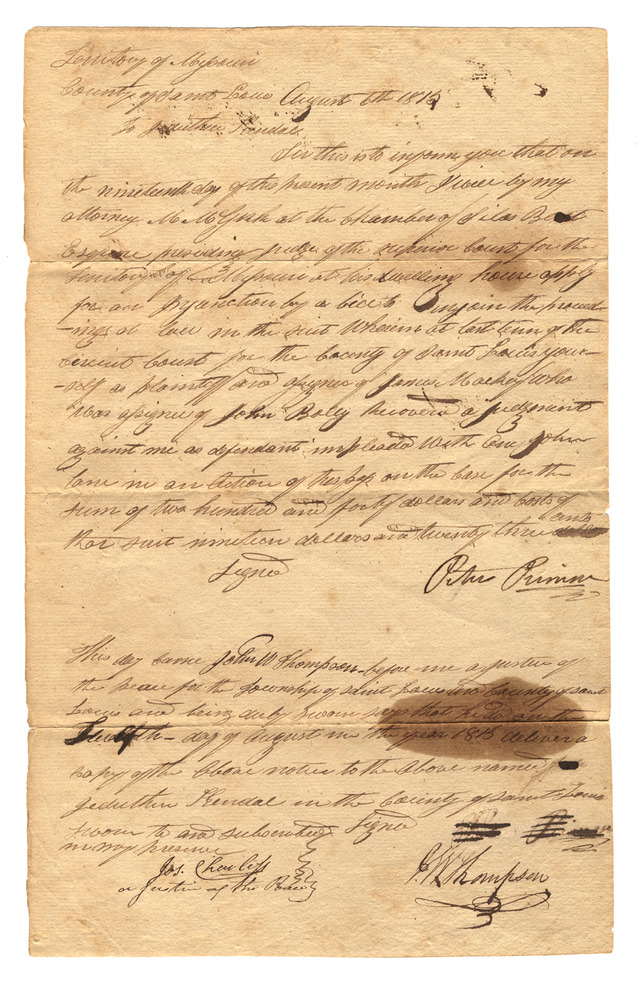 Territory of Missouri
County of Saint Louis August 6th 1813
To Jeduthen Kendal
Sir this is to inform you that on
the nineteenth day of this present month I will by my
attorney M McGirk at the Chamber of Silas Bent
Esquire presiding judge of the superior Court for the
Territory of Missouri at his dwelling house apply
for an Injunction by a bill to Enjoin the proceed
-ings at law in the suit Wherein at last term of the
Circuit Court for the County of Saint Louis your-
-self as plaintiff and assignee of James Mackay Who
Was assignee of John Boley Recovered a judgment
against me as defendant impleaded With One John
lane in an action of trespass on the Case for the
sum of two hundred and forty dollars and Costs of
that suit nineteen dollars and twenty three cents
Signed Peter Primm
This day Came John W Thompson before me a justice of
the peace for the Township of Saint Louis and County of Saint
Louis and being duly sworn says that he did on the
Twelfth day of August in the year 1813 deliver a
Copy of the above notice to the above named
Jeduthen Kendal in the County of Saint Louis
sworn to and subscribed Signed
in my presence
Jos. Charless
a Justice of the Peace
J W Thompson